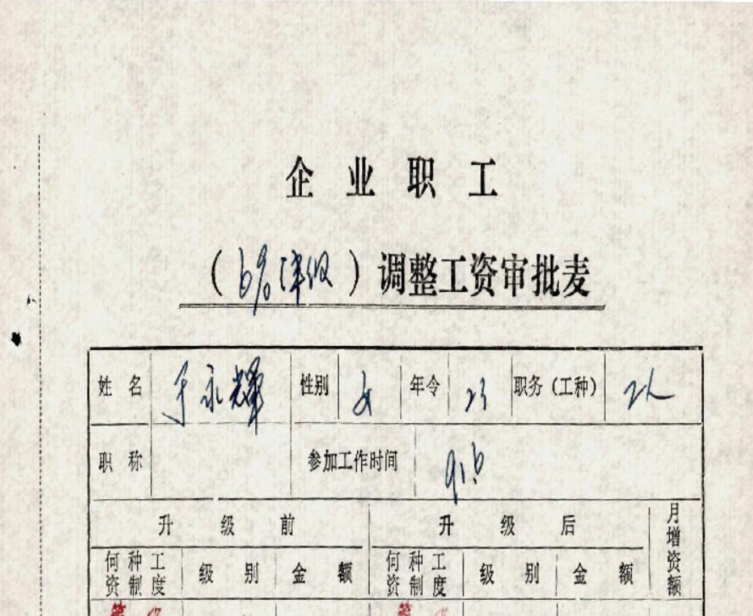 企业职工
（6%津级）调整工资审批麦
姓名 于永辉 性别 女 年令 23 职务（工种） 工人
职称 参加工作时间 91.6
升级前 升级后 月增资额
何种工资制度 级别 金额 何种工资制度 级别 金额